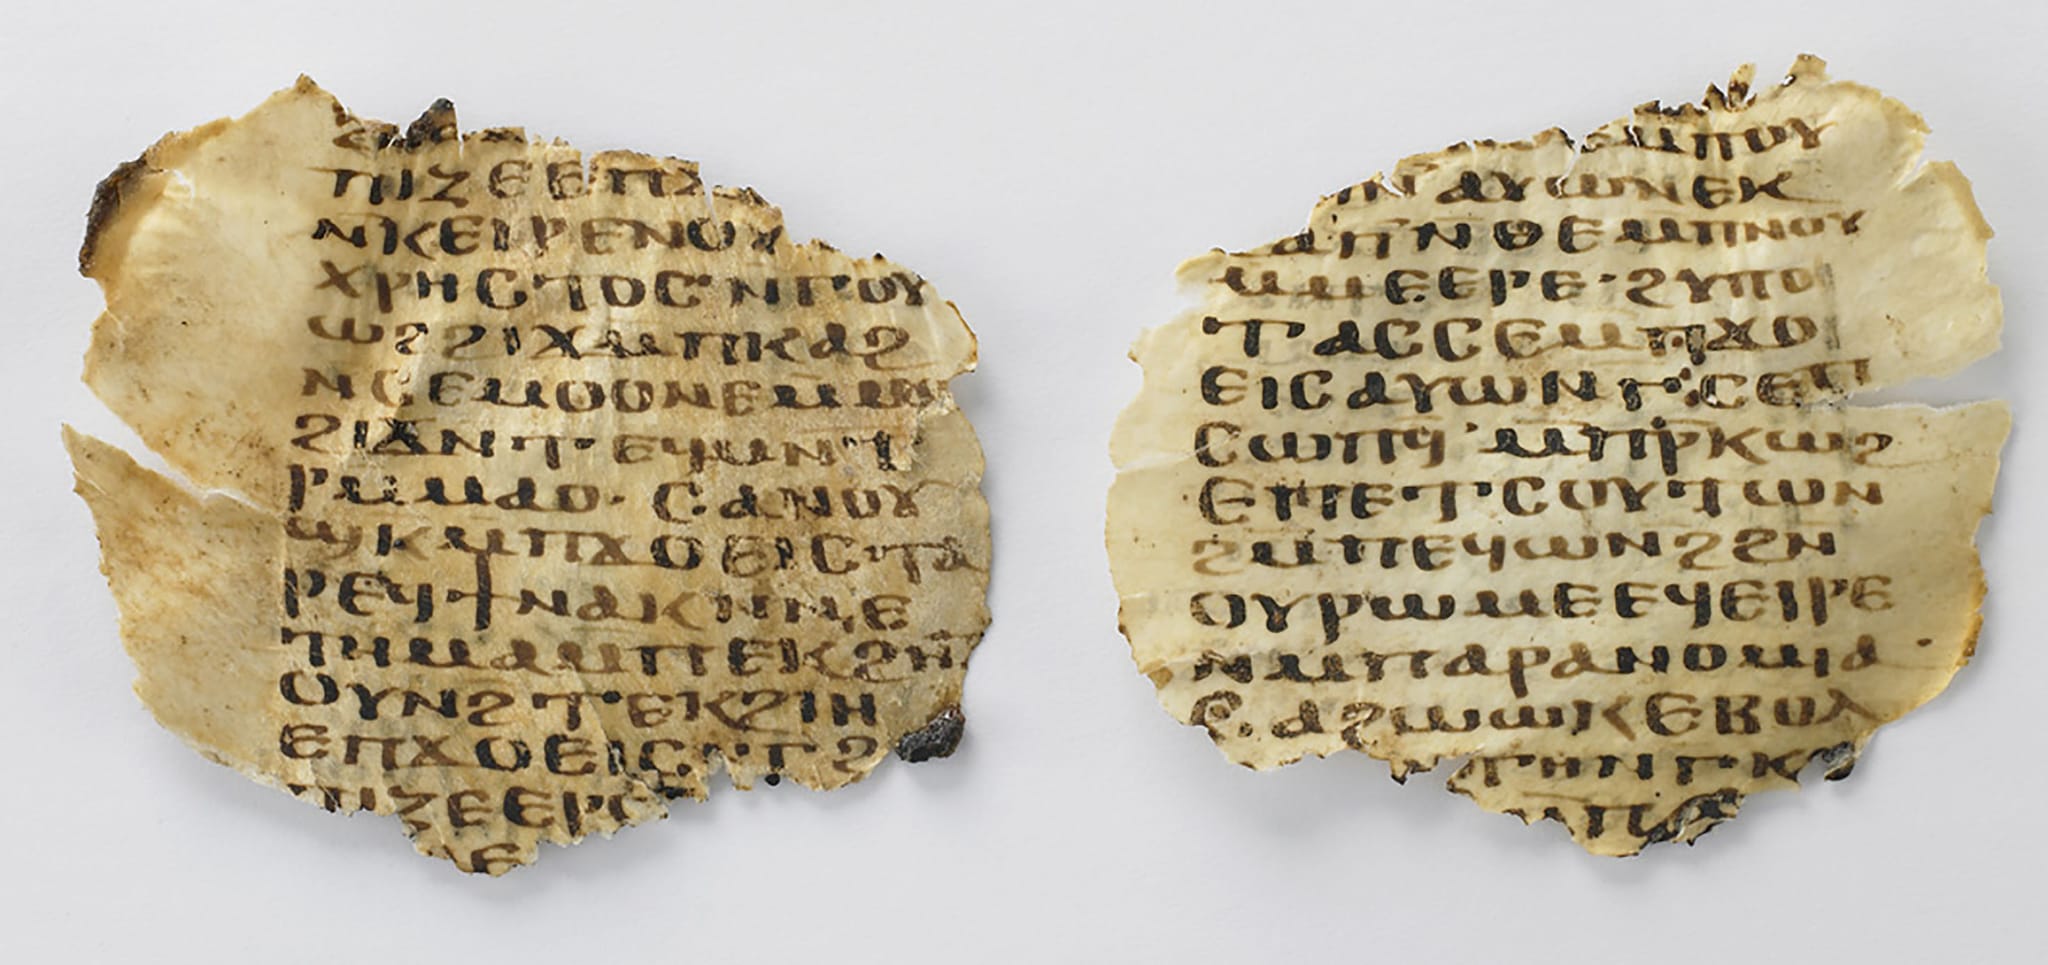 ϩⲉⲗⲡ
ⲡⲓⲍⲉ ⲉⲡϫ
ⲛⲅⲉⲓⲣⲉ ⲛⲟⲩ
ⲭⲣⲏⲥⲧⲟⲥ· ⲛⲅⲟⲩ
ⲱϩ ϩⲓϫⲙⲡⲕⲁϩ
ⲛⲥⲉⲙⲟⲟⲛⲉ ⲙⲙⲟ
ϩⲓϫⲛⲧⲉϥⲙⲛⲧ
ⲣⲙⲙⲁⲟ· ⲥⲁⲛⲟⲩ
ϣⲕ ⲙⲡϫⲟⲉⲓⲥ ⲧⲁ
ⲣⲉϥϯ ⲛⲁⲕ ⲛⲛⲉ
ⲧⲏⲙⲁ ⲙⲡⲉⲕϩⲏⲧ
ⲟⲩⲛϩ ⲧⲉⲕϩⲓⲏ
ⲉⲡϫⲟⲉⲓⲥ· ⲛⲅϩ
ⲡⲓⲍⲉ ⲉⲣⲟ
ⲙⲡⲟⲩ
ⲓⲛ ⲁⲩⲱ ⲡⲉⲕ
ϩⲁⲡ ⲛⲑⲉ ⲙⲡⲛⲟⲩ
ⲙⲙⲉⲉⲣⲉ· ϩⲩⲡⲟ
ⲧⲁⲥⲥⲉ ⲙⲡϫⲟ
ⲉⲓⲥ ⲁⲩⲱ ⲛⲅⲥⲉⲡ
ⲥⲱⲡϥ· ⲙⲡⲣⲕⲱϩ
ⲉⲡⲉⲧⲥⲟⲩⲧⲱⲛ
ϩⲙⲡⲉϥⲱⲛϩ ϩⲛ
ⲟⲩⲣⲱⲙⲉ ⲉϥⲉⲓⲣⲉ
ⲛⲙⲡⲁⲣⲁⲛⲟⲙⲓⲁ·
ⲉ· ⲁϩⲱⲱⲕ ⲉⲃⲟⲗ
ⲟⲣⲅⲏ ⲛⲅⲕ